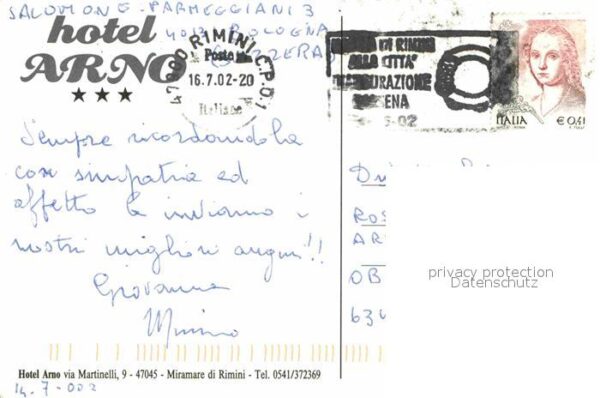 SALOMONE - PARMEGGIANI 3
hotel
ARNO
★★★
BOLOGNA
47900 RIMINI C.P.O.
Poste
16.7.02-20
Italiane
RIMINI
ALLO CITTA'
ITALIA
€ 0,41
Sempre ricordandola
con simpatia ed
affetto le inviamo i
nostri migliori auguri!!
Giovanna
Mimmo
OB
privacy protection
Datenschutz
Hotel Arno via Martinelli, 9 - 47045 - Miramare di Rimini - Tel. 0541/372369
14-7-002